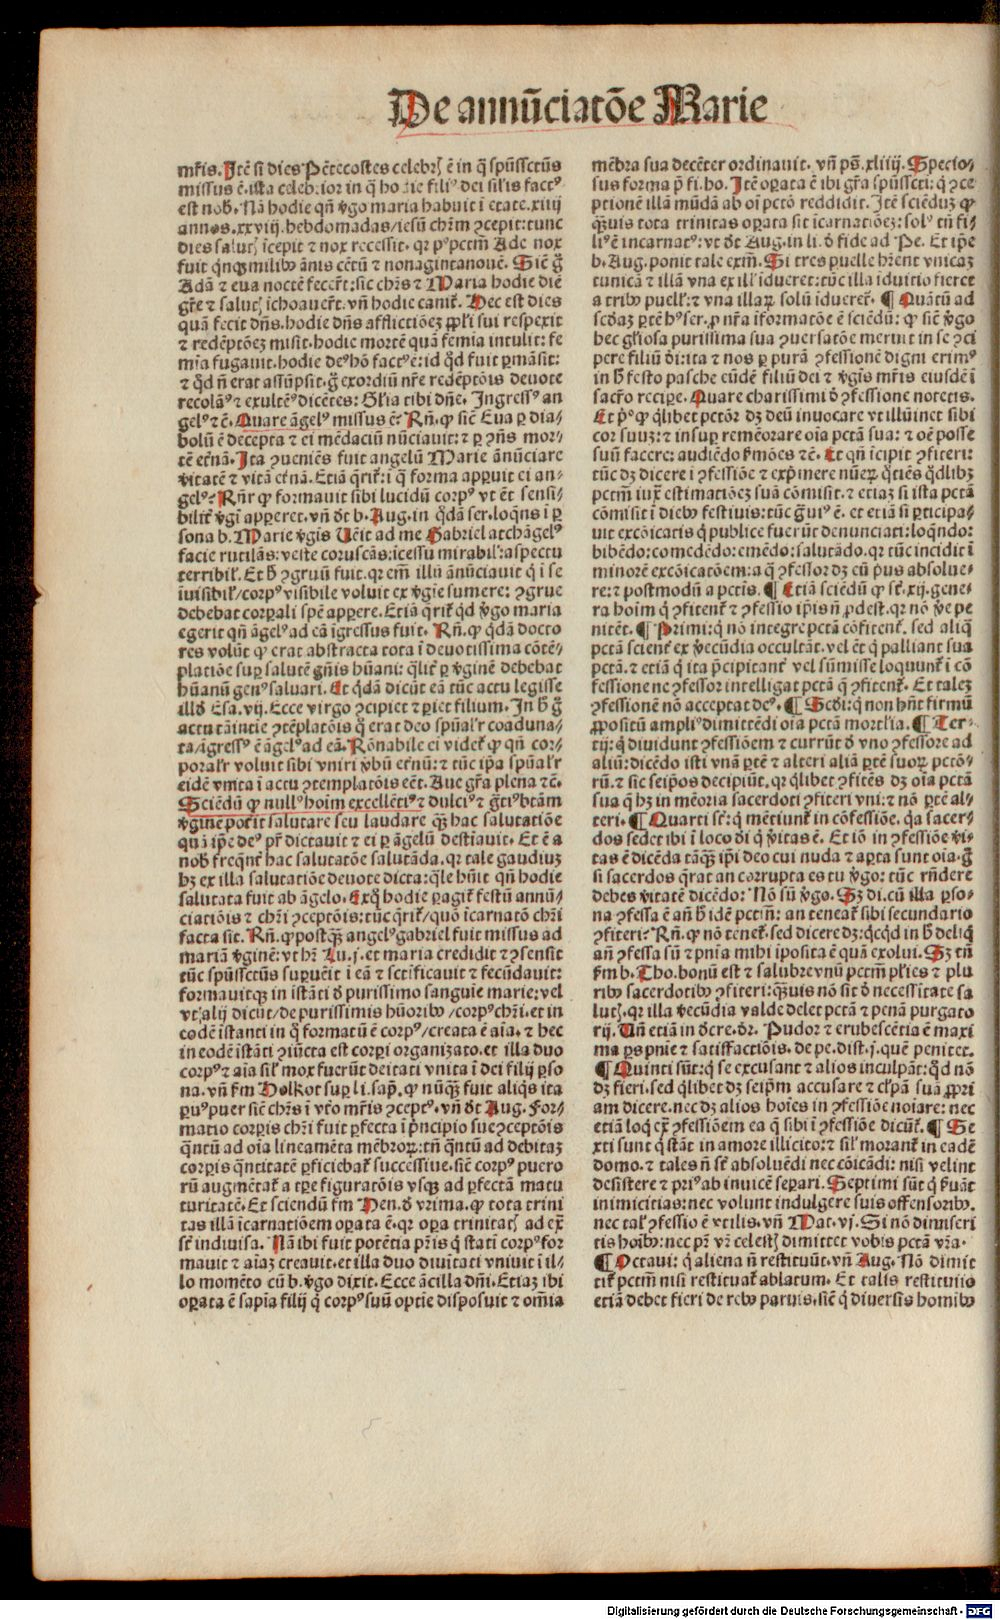 De annūciatōe Marie
mr̄is. Itē si dies Pētecostes celebrꝭ ē in q̄ spūssctūs
missus ē. ista celebrior in q̄ hodie filiꝰ dei sil'is factꝰ
est nob̄. Nā hodie qn̄ v̓go maria habuit ī etate .xiiij
annos. xxviij. hebdomadas/iesū chr̄m ꝯcepit: tunc
dies salutꝭ īcepit ⁊ nox recessit. qr pꝰ pctm̄ Ade nox
fuit qͥnqꝫ milibꝰ ānis cētū ⁊ nonagintanouē. Sic̄ g̊
Adā ⁊ eua noctē fecer̄t: sic chr̄s ⁊ Maria hodie diē
gr̄e ⁊ salutꝭ īchoauer̄t. vn̄ hodie canit̄. Hec est dies
quā fecit dn̄s. hodie dn̄s afflictiōeꝫ ppl̄i sui respexit
⁊ redēptōeꝫ misit. hodie mortē quā femīa intulit: fe
mīa fugauit. hodie deꝰ hō factꝰ ē: id qd̄ fuit ꝑmāsit:
⁊ qd̄ nō erat assūpsit. g̊ exordiū nr̄e redēptōis deuote
recolāꝰ ⁊ exultētꝰ dicētes: Gl̄ia tibi dn̄e. Ingressꝰ an
gelꝰ ⁊ē. Quare āgelꝰ missus ē? Rn̄. ꝙ sic̄ Eua ꝑ dia/
bolū ē decepta ⁊ ei mēdaciū nūciauit: ⁊ ꝑ ꝯn̄s mor/
tē etnā. Ita ꝯueniēs fuit angelū Marie ānūciare
v̓itatē ⁊ vitā etnā. Etiā qͥrit̄: ī q̄ forma appuit ei an/
gelꝰ? Rn̄r ꝙ formauit sibi lucidū corpꝰ vt ēt sensi/
bilit̓ vͥgī appeeret. vn̄ dt b. Aug. in qͣdā ser. loqn̄s ī ꝑ
sona b. Marie vͥgis Uēit ad me Gabriel archāgelꝰ
facie rutilās: veste coruscās: īcessu mirabil': aspectu
terribil'. Et h̄ ꝯgruū fuit. qr em̄ illū ānūciauit qͥ ī se
īuisibil'/corpꝰ visibile voluit ex vͥgīe sumere: ꝯgrue
debebat corpali spē appere. Etiā qͥrit̓ qd̄ v̓go maria
egerit qn̄ āgelꝰ ad eā īgressus fuit. Rn̄. ꝙ qͥdā docto
res volūt ꝙ erat abstracta tota ī deuotissima cōtē/
platiōe suꝑ salutē gn̄is hūani: qͣlit̓ ꝑ v̓ginē debebat
hūanū genꝰ saluari. Et qͥdā dicūt eā tūc actu legisse
illd̓ Esa. vij. Ecce virgo ꝯcipiet ⁊ pariet filium. In h̄ g̊
actu tāintie ꝯtēplatōis qͥ erat deo spūal'r coaduna/
ta/īgressꝰ ē āgelꝰ ad eā. Rōnabile ei videt̄ ꝙ qn̄ cor/
poral'r voluit sibi vniri v̓bū etnū: ⁊ tūc ip̄a spūal'r
eidē vnita ī actu ꝯtemplatōis eēt. Aue gr̄a plena ⁊ē.
Sciēdū ꝙ nullꝰ hoīm excellētiꝰ ⁊ dulciꝰ ⁊ gͣtiꝰ btām
v̓ginē potēit salutare seu laudare qꝫ hac salutatiōe
quā ip̄e deꝰ pr̄ dictauit ⁊ ei ꝑ āgelū destīauit. Et ē a
nob̄ freqn̄t̓ hac salutatōe salutāda. qr tale gaudiuꝫ
hꝫ ex illa salutatiōe deuote dicta: qͣle hūit qn̄ hodie
salutata fuit ab āgelo. Exqͦ hodie ꝑagit̄ festū annū/
ciatiōis ⁊ chr̄i ꝯceptōis: tūc qͥrit̓/quō īcarnatō chr̄i
facta sit. Rn̄. ꝙ postqꝫ angelꝰ gabriel fuit missus ad
mariā v̓ginē: vt hr̄ Lu. j. et maria credidit ⁊ ꝯsensit
tūc spūssctūs suꝑuēit ī eā ⁊ sctīficauit ⁊ fecūdauit:
formauitqꝫ in īstāti d̓ purissimo sanguīe marie: vel
vt alij dicūt/de purissimis hūoribꝰ/corpꝰ chr̄i. et in
eodē īstanti in qͦ formatū ē corpꝰ/creata ē aīa. ⁊ hec
in eodē īstāti ꝯiūcta est corpi organizato. et illa duo
corpꝰ ⁊ aīa sil' mox fuerūt deitati vnita ī dei filij ꝑso
na. vn̄ fm Holkot suꝑ li. sap̄. ꝙ nūqꝫ fuit aliqͥs ita
ꝑuꝰ puer sic̄ chr̄s ī vt̓o mr̄is ꝯceptꝰ. vn̄ dt Aug. For/
matio corpis chr̄i fuit ꝑfecta ī pͥncipio sue ꝯceptōis
qn̄tū ad oīa lineamēta mēbroꝝ: tn̄ qn̄tū ad debitaꝫ
corpis qn̄titatē ꝑficiebat̄ successiue. sic̄ corpꝰ puero
rū augmētat̄ a tꝑe figuratōis vsqꝫ ad ꝑfectā matu
turitatē. Et sciendū fm Pen. d̓ vrima. ꝙ tota trini
tas illā īcarnatiōem oꝑata ē. qr oꝑa trinitatꝭ ad ext̄
st̄ indiuisa. Nā ibi fuit potētia pr̄is qͥ statī corpꝰ for
mauit ⁊ aīaꝫ creauit. et illa duo diuītati vniuit ī il/
lo momēto cū b. v̓go dixit. Ecce ācilla dn̄i. Etiaꝫ ibi
oꝑata ē sapīa filij qͥ corpꝰ suū optie disposuit ⁊ om̄ia
mēbra sua decēter ordinauit. vn̄ ps̄. xliiij. Specio/
sus forma p̄ fi. ho. Itē oꝑata ē ibi gr̄a spūsscti: q̄ ꝯce
ptionē illā mūdā ab oī pctō reddidit. Itē sciēduꝫ ꝙ
qͣꝫuis tota trinitas oꝑata sit īcarnatiōeꝫ: solꝰ tn̄ fi/
liꝰ ē incarnatꝰ: vt dt Aug. in li. d̓ fide ad Pe. Et ip̄e
b. Aug. ponit tale exm̄. Si tres puelle hr̄ent vnicaꝫ
tunicā ⁊ illā vna ex ill' īdueret: tūc illa īduitio fieret
a tribꝰ puell': ⁊ vna illaꝝ solū īdueret̄. ¶ Quātū ad
scd̓aꝫ ꝑtē hꝰ ser. ꝓ nr̄a īformatōe ē sciēdū: ꝙ sic̄ v̓go
hec gl̄iosa purissima sua ꝯuersatōe meruit in se ꝯci
pere filiū dī: ita ⁊ nos ꝑ purā ꝯfessionē digni erimꝰ
in h̄ festo pasche eūdē filiū dei ⁊ v̓gīs mr̄is eiusdē ī
sacr̄o reciꝑe. Quare charissimi d̓ ꝯfessione notetis.
Et pͥꝰ ꝙ qͥlibet pctōr dꝫ deū inuocare vt illūinet sibi
cor suuꝫ: ⁊ insuꝑ remēorare oīa pctā sua: ⁊ oē posse
suū facere: audiēdo ẜmōes ⁊ē. Et qn̄ īcipit ꝯfiteri:
tūc dꝫ dicere ī ꝯfessiōe ⁊ expͥmere nūeꝝ qͦtiēs qd̓libꝫ
pctm̄ iuxͭ estimatiōeꝫ suā cōmisit. ⁊ etiaꝫ si ista pctā
cōmisit ī diebꝰ festiuis: tūc gͣuiꝰ ē. et etiā si ꝑticipa/
uit excōicatis qͥ publice fuerūt denunciati: loqn̄do:
bibēdo: comedēdo: emēdo: salutādo. qr tūc incidit ī
minorē excōicatōem: a q̄ ꝯfessor dꝫ eū pͥus absolue/
re: ⁊ postmodū a pctis. ¶ Etiā sciēdū ꝙ st̄. xij. gene/
ra hoīm qͥ ꝯfitent̄ ⁊ ꝯfessio ip̄is nō ꝓdest. qr nō v̓e pe
nitēt. ¶ Primi: qͥ nō integre pctā cōfitent̄. sed aliqͣ
pctā scient̓ ex v̓ecūdia occultāt. vel ēt qͥ palliant sua
pctā. ⁊ etiā qͥ ita pͥcipitant̓ vel sūmisse loquunt̄ ī cō
fessione ne ꝯfessor intelligat pctā q̄ ꝯfitent̄. Et taleꝫ
ꝯfessionē nō acceptat deꝰ. ¶ Scd̓i: qͥ non hn̄t firmū
ꝓpositū ampliꝰ dimittēdi oīa pctā mortl̄ia. ¶ Ter/
tij: qͥ diuidunt ꝯfessiōem ⁊ currūt d̓ vno ꝯfessore ad
aliū: dicēdo isti vnā ꝑtē ⁊ alteri aliā ꝑtē suoꝝ pctō/
rū. ⁊ sic seip̄os decipiūt. qr qͥlibet ꝯfitēs dꝫ oīa pctā
sua q̄ hꝫ in mēoria sacerdoti ꝯfiteri vni: ⁊ nō ꝑtē al/
teri. ¶ Quarti st̄: qͥ mētiunt̄ in cōfessiōe. qͣ sacer/
dos sedet ibi ī loco dī qͥ v̓itas ē. Et iō in ꝯfessiōe v̓i/
tas ē dicēda tāqꝫ ip̄i deo cui nuda ⁊ aꝑta sunt oīa. g̊
si sacerdos qͥrat an corrupta es tu v̓go: tūc rn̄dere
debes v̓itatē dicēdo: Nō sū v̓go. Sꝫ di. cū illa ꝑso/
na ꝯfessa ē an̄ h̄ idē pctm̄: an teneat̄ sibi secundario
ꝯfiteri? Rn̄. ꝙ nō tenet̄. sed dicere dꝫ: qͥcqͥd in h̄ deliqͥ
an̄ ꝯfessa sū ⁊ pnīa mihi īposita ē quā exolui. Sꝫ tn̄
fm b. Tho. bonū est ⁊ salubre vnū pctm̄ pl̄ies ⁊ plu
ribꝰ sacerdotibꝰ ꝯfiteri: qͣꝫuis nō sit d̓ necessitate sa
lutꝭ. qr illa v̓ecūdia valde delet pctā ⁊ penā purgato
rij. Un̄ etiā in d̓cre. dr̄. Pudor ⁊ erubescētia ē maxi
ma ps pnīe ⁊ satisfactiōis. de pe. dist. j. quē penitet.
¶ Quinti sūt: qͥ se excusant ⁊ alios inculpāt: qd̄ nō
dꝫ fieri. sed qͥlibet dꝫ seip̄m accusare ⁊ cl̄pā suā ꝓpri
am dicere. nec dꝫ alios hoīes in ꝯfessiōe noīare: nec
etiā loqͥ ext̓ ꝯfessiōem ea q̄ sibi ī ꝯfessiōe dicūt̄. ¶ Se
xti sunt qͥ stāt in amore illicito: ⁊ sil' morant̄ in eadē
domo. ⁊ tales nō st̄ absoluēdi nec cōicādi: nisi velint
desistere ⁊ priꝰ ab inuicē separi. Septimi sūt qͥ ẜuāt
inimicitias: nec volunt indulgere suis offensoribꝰ.
nec tal' ꝯfessio ē vtilis. vn̄ Mat. vj. Si nō dimiseri
tis hoībꝰ: nec pr̄ vr̄ celestꝭ dimittet vobis pctā vr̄a.
¶ Octaui: qͥ aliena nō restituūt. vn̄ Aug. Nō dimit
tit̄ pctm̄ nisi restituat̄ ablatum. Et talis restitutio
etiā debet fieri de rebꝰ paruis. sic̄ qͥ diuersis homībꝰ
Digitalisierung gefördert durch die Deutsche Forschungsgemeinschaft - DFG